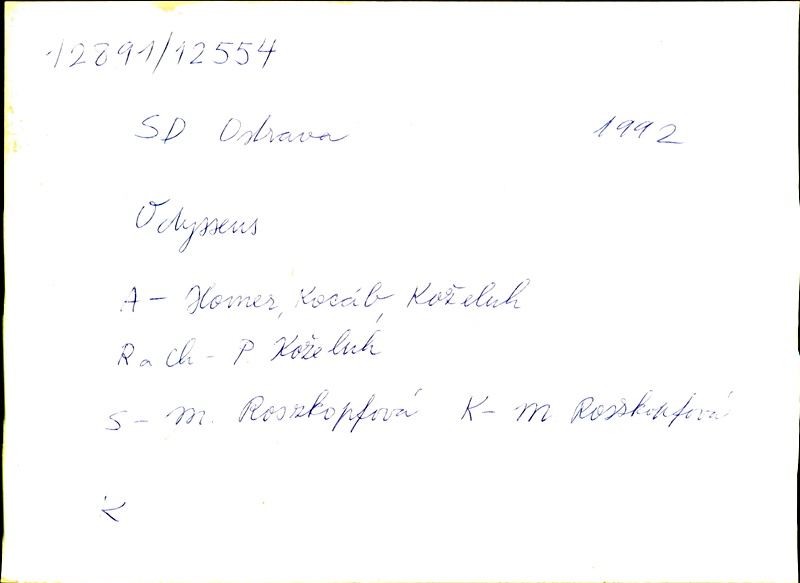 12891/12554
SD Ostrava 1992
Odysseus
A - Homer, Kocáb, Koželuh
R a Ch - P. Koželuh
S - M. Roszkopfová K - M Roszkopfová
K